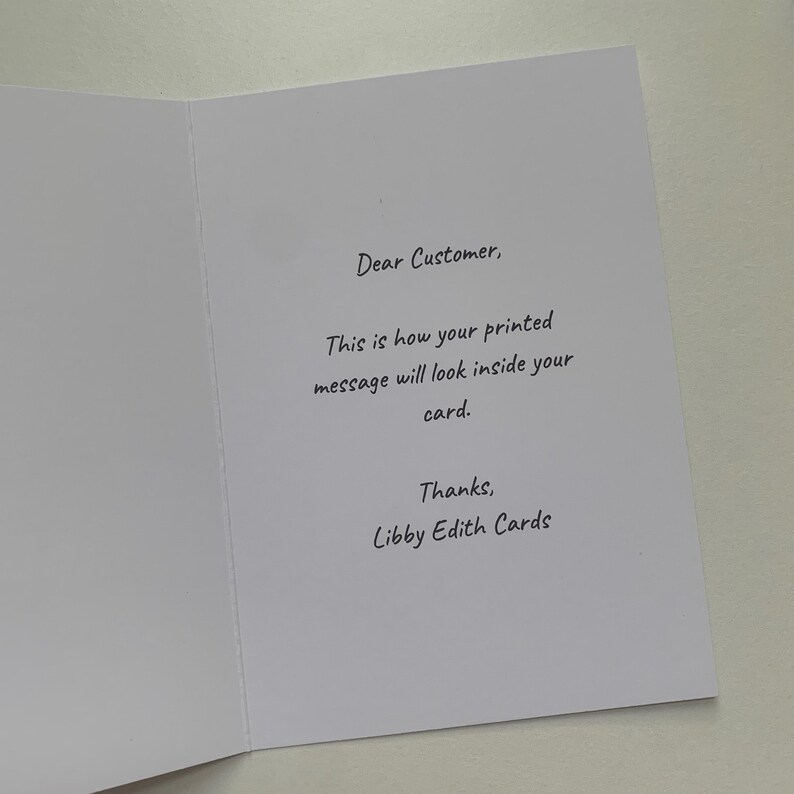 Dear Customer,
This is how your printed
message will look inside your
card.
Thanks,
Libby Edith Cards